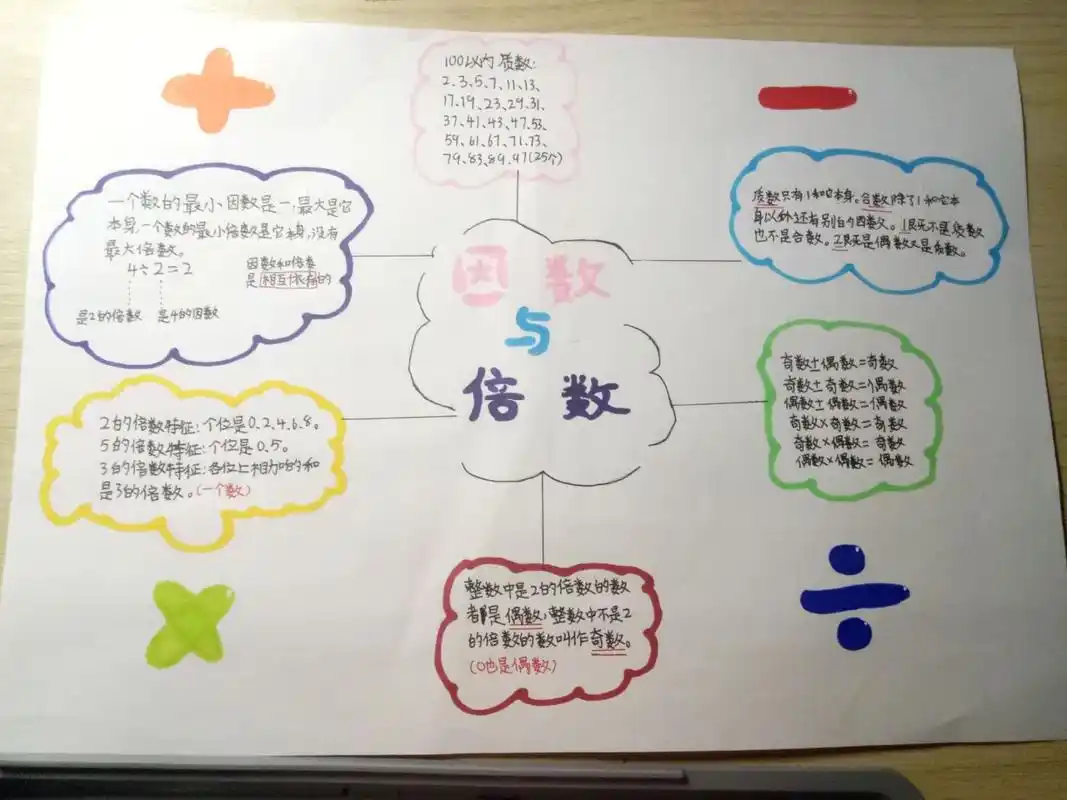 100以内质数:
2、3、5、7、11、13、
17、19、23、29、31、
37、41、43、47、53、
59、61、67、71、73、
79、83、89、97(25个)
一个数的最小因数是一,最大是它
本身,一个数的最小倍数是它本身,没有
最大倍数。
4÷2=2
是2的倍数 是4的因数
因数和倍数
是相互依存的
质数只有1和它本身。合数除了1和它本
身以外还有别的因数。1既不是质数
也不是合数。2既是偶数又是质数。
因数
与
倍数
2的倍数特征:个位是0.2.4.6.8。
5的倍数特征:个位是0.5。
3的倍数特征:各位上相加的和
是3的倍数。(一个数)
奇数±偶数=奇数
奇数±奇数=偶数
偶数±偶数=偶数
奇数×奇数=奇数
奇数×偶数=奇数
偶数×偶数=偶数
整数中是2的倍数的数
都是偶数,整数中不是2
的倍数的数叫作奇数。
(0也是偶数)